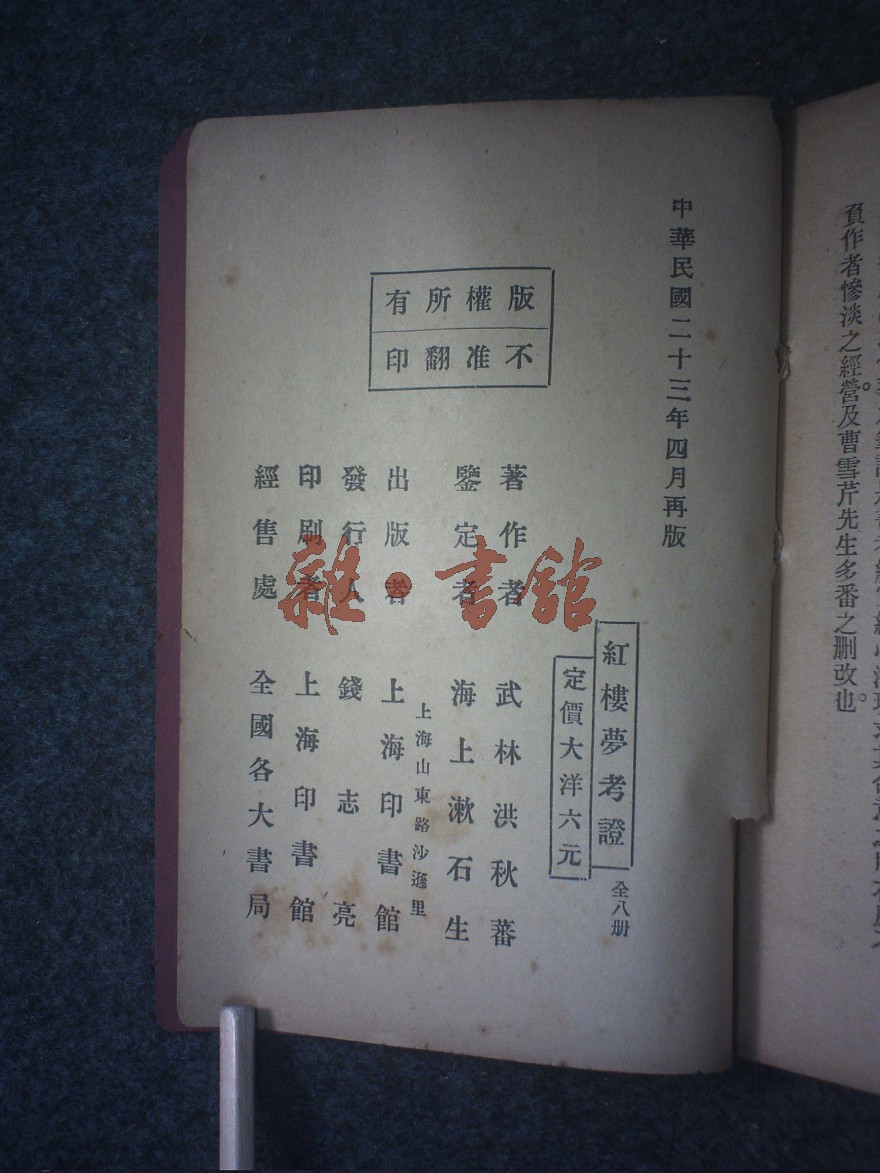 負作者慘淡之經營及曹雪芹先生多番之删改也。
中華民國二十三年四月再版
版權所有
不准翻印
紅樓夢考證 全八册
定價大洋六元
著作者 武林洪秋蕃
鑒定者 海上漱石生
上海山東路沙遜里
出版者 上海印書館
發行人 錢志亮
印刷者 上海印書館
經售處 全國各大書局
雜·書館